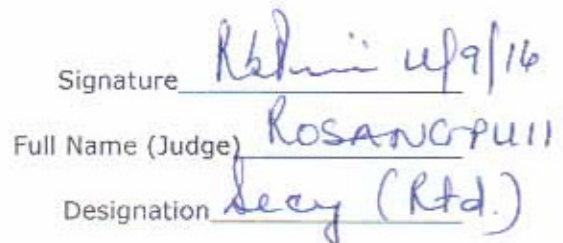 Signature 4/9/16
Full Name (Judge) ROSANGPUII
Designation Secy (Rtd.)